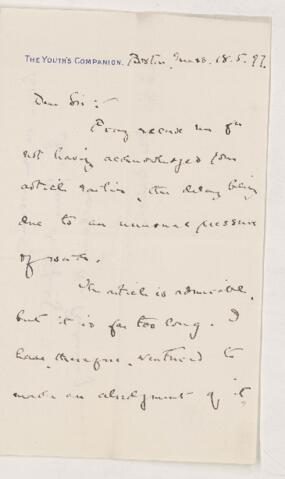 THE YOUTH'S COMPANION. Boston, Mass. 18.5.97.
Dear Sir:
Pray excuse me for
not having acknowledged your
article earlier, the delay being
due to an unusual pressure
of work.
The article is admirable,
but it is far too long. I
have, therefore, ventured to
make an abridgment of it,